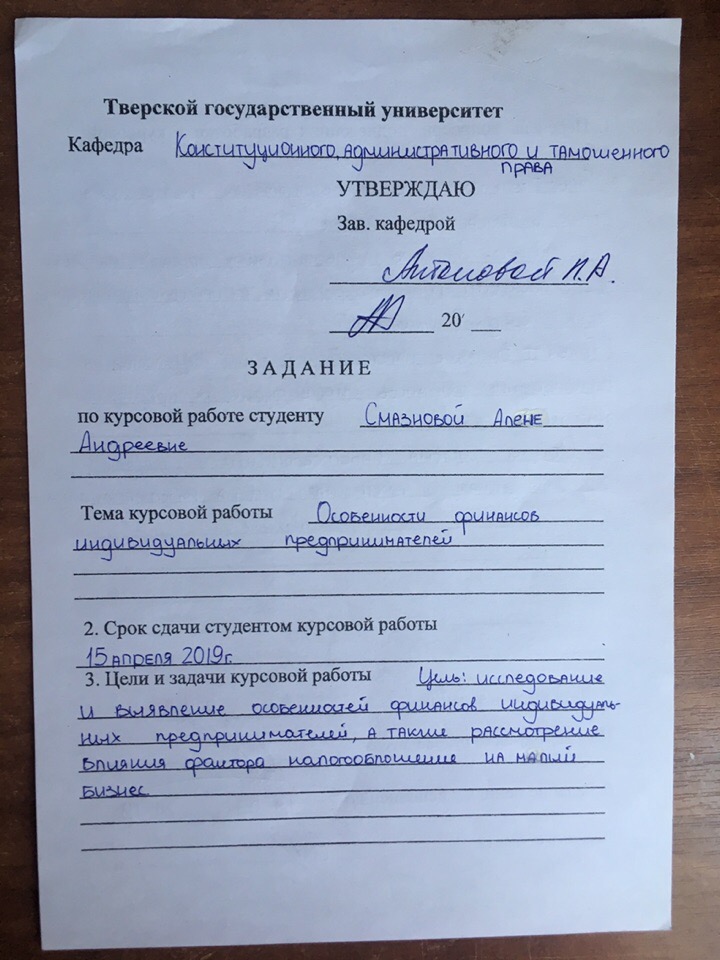 Тверской государственный университет
Кафедра Конституционного, административного и таможенного
права
УТВЕРЖДАЮ
Зав. кафедрой
Антоновой Н.А.
20
ЗАДАНИЕ
по курсовой работе студенту Смазновой Алене
Андреевне
Тема курсовой работы Особенности финансов
индивидуальных предпринимателей
2. Срок сдачи студентом курсовой работы
15 апреля 2019г.
3. Цели и задачи курсовой работы Цель: исследование
и выявление особенностей финансов индивидуаль-
ных предпринимателей, а также рассмотрение
влияния фактора налогообложение на малый
бизнес